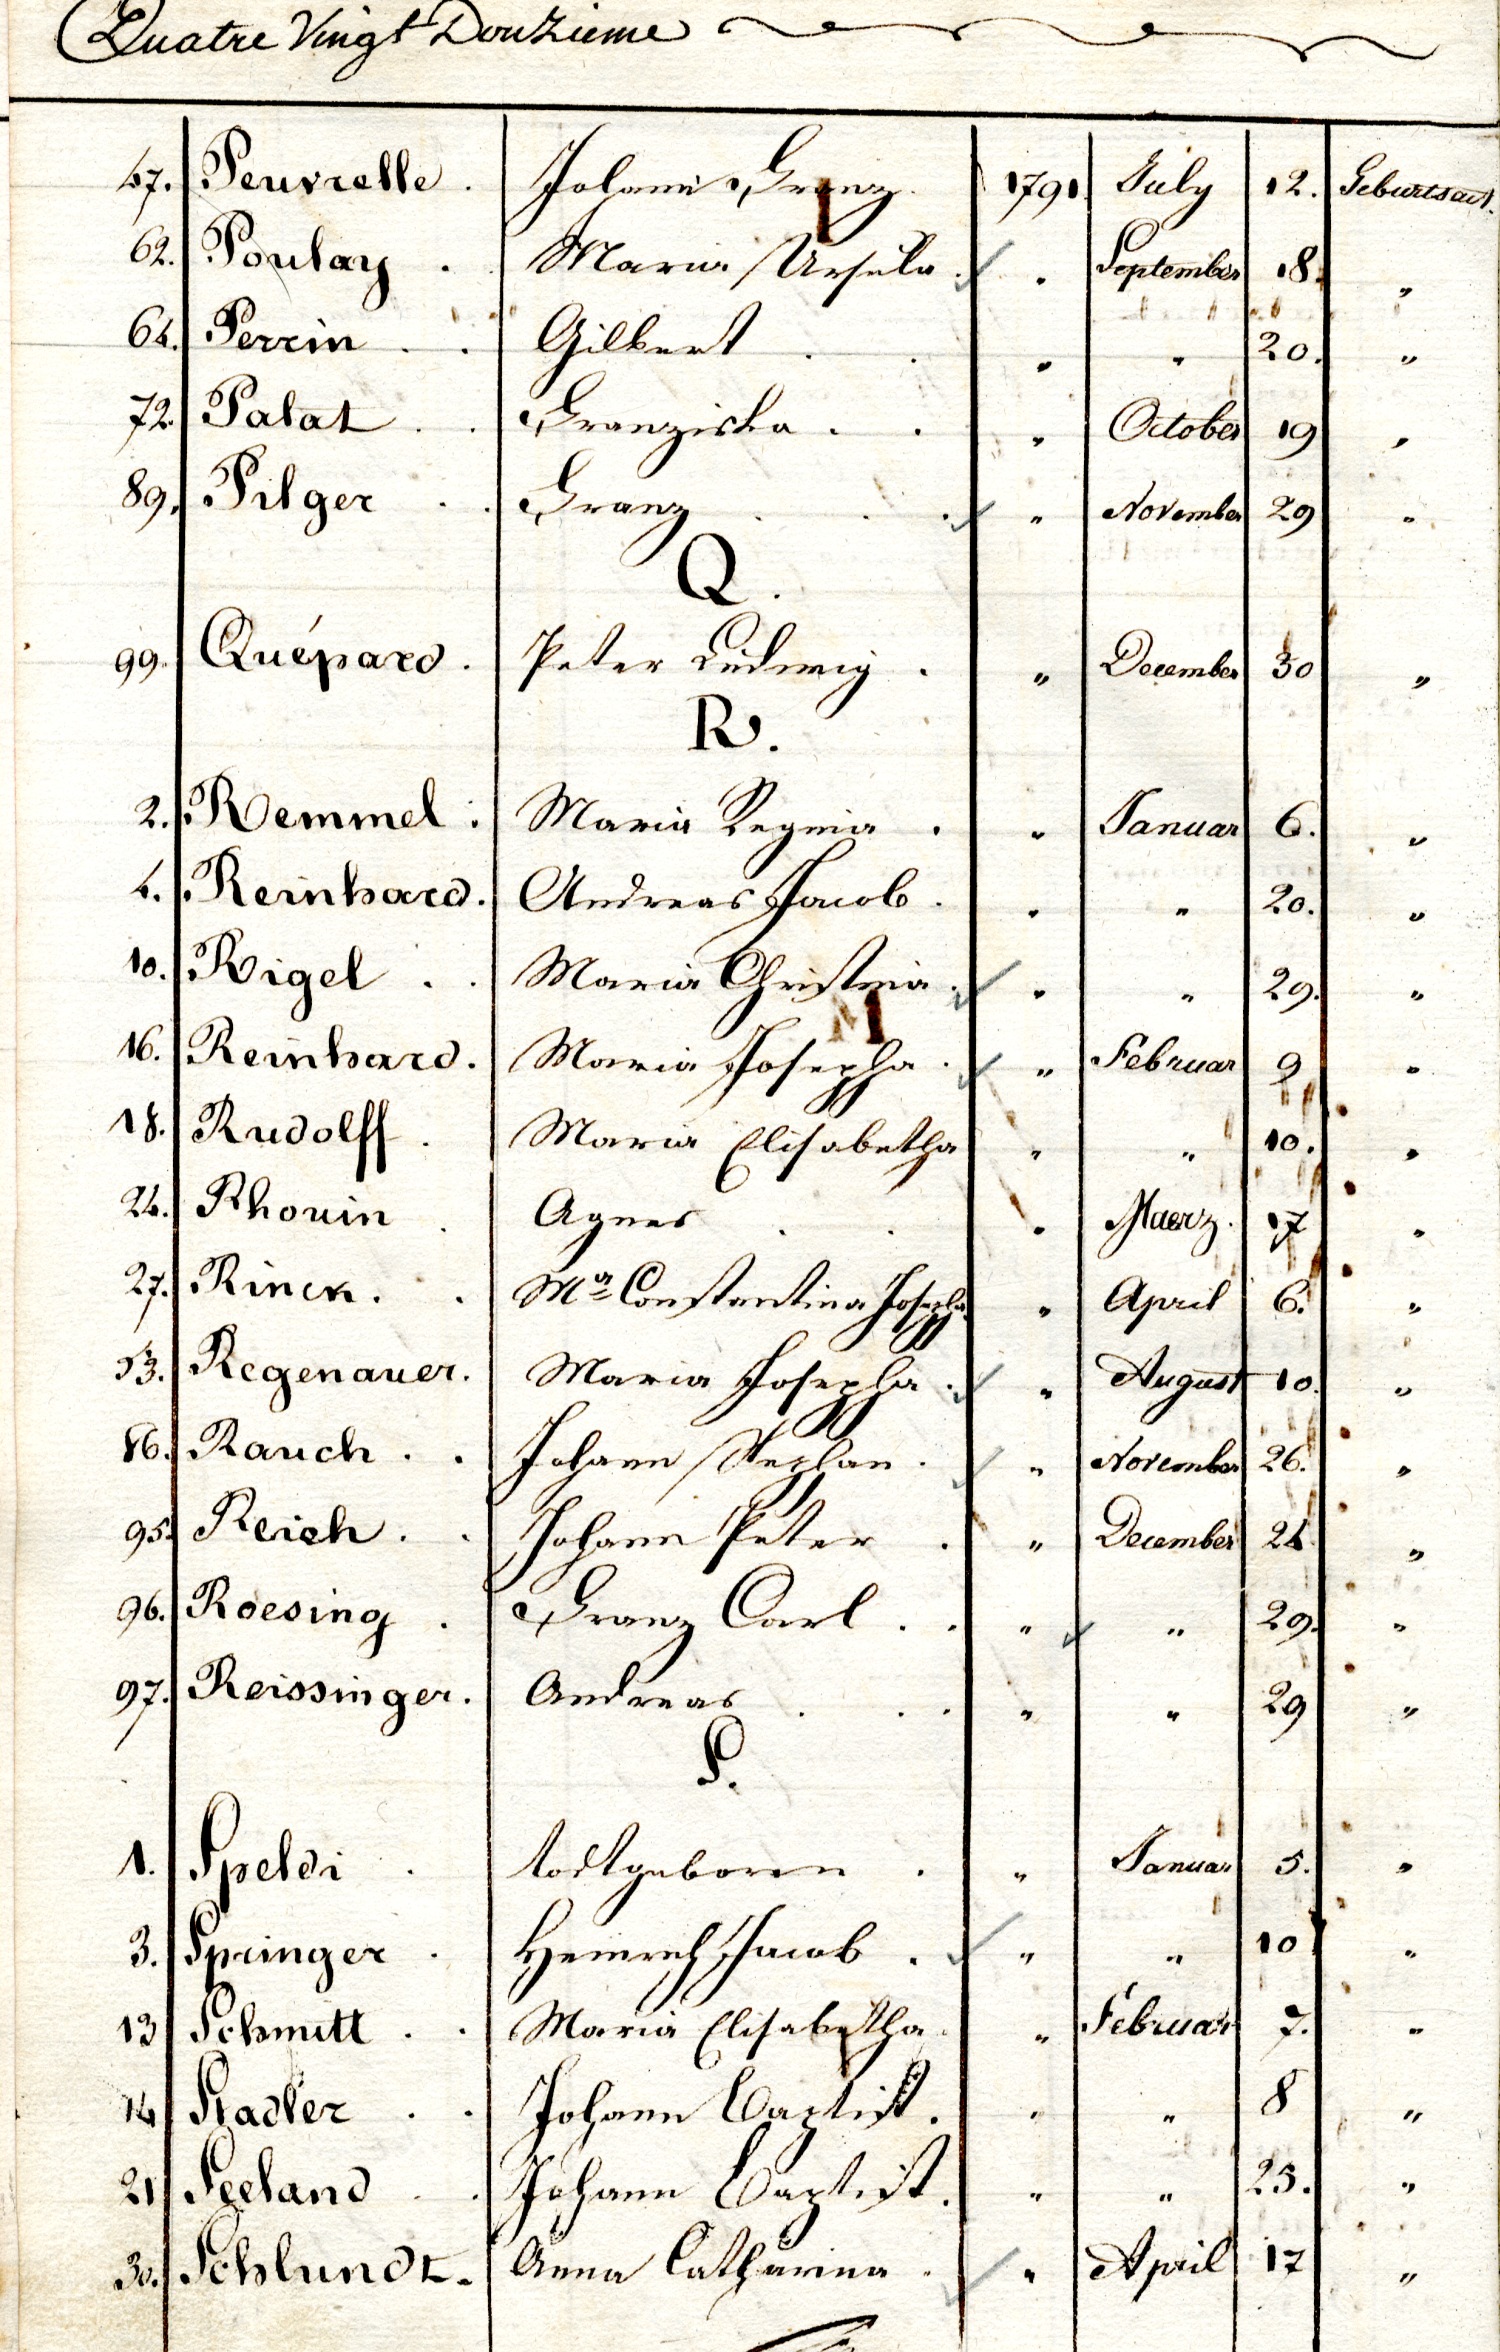 Quatre Vingt Douzieme
47. Peuvrelle . Johann Franz . 1791 July 12. Geburtsact.
62. Poulay . Maria Ursula . " September 18. "
64. Perrin . . Gilbert . . " " 20. "
72. Palat . . Franziska . . " October 19 "
89. Pilger . . Franz . . . " November 29 "
Q.
99. Quépard . Peter Ludwig . " December 30 "
R.
2. Remmel . Maria Regina . " Januar 6. "
4. Reinhard . Andreas Jacob . " " 20. "
10. Rigel . . Maria Christina . " " 29. "
16. Reinhard . Maria Josepha . " Februar 9 "
18. Rudolff . Maria Elisabetha " " 10. "
24. Rhouin . Agnes . . " Maerz . 17 "
27. Rinck . . Mª Constantina Josepha " April 6. "
53. Regenauer . Maria Josepha . " August 10. "
86. Rauch . . Johann Stephan . " November 26. "
95. Reich . . Johann Peter . " December 24 "
96. Roesing . Franz Carl . . " " 29. "
97. Reissinger . Andreas . . . " " 29 "
S.
1. Speldi . todtgeboren . " Januar 5. "
3. Springer . Heinrich Jacob . " " 10 "
13 Schmitt . . Maria Elisabetha . " Februar 7. "
14 Stadler . . Johann Baptist . " " 8 "
21 Seeland . . Johann Baptist . " " 25. "
30. Schlundt . Anna Catharina . " April 17 "